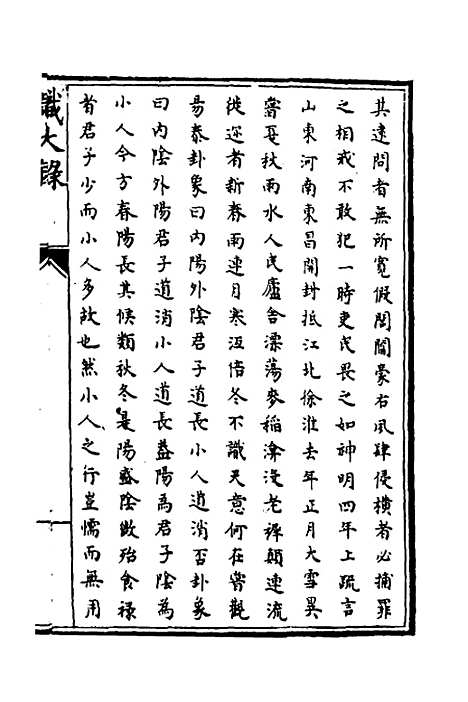 其逮問者無所寬假閭閻豪右夙肆侵橫者必捕罪
之相戒不敢犯一時吏民畏之如神明四年上疏言
山東河南東昌開封抵江北徐淮去年正月大雪異
常夏秋雨水人民廬舍漂蕩麥稻渰沒老稚顛連流
徙迨者新春雨連月寒沍倍冬不識天意何在嘗觀
易泰卦象曰內陽外陰君子道長小人道消否卦象
曰內陰外陽君子道消小人道長益陽為君子陰為
小人今方春陽長其候類秋冬是陽盛陰微殆食祿
者君子少而小人多故也然小人之行豈懦而無用
識大錄